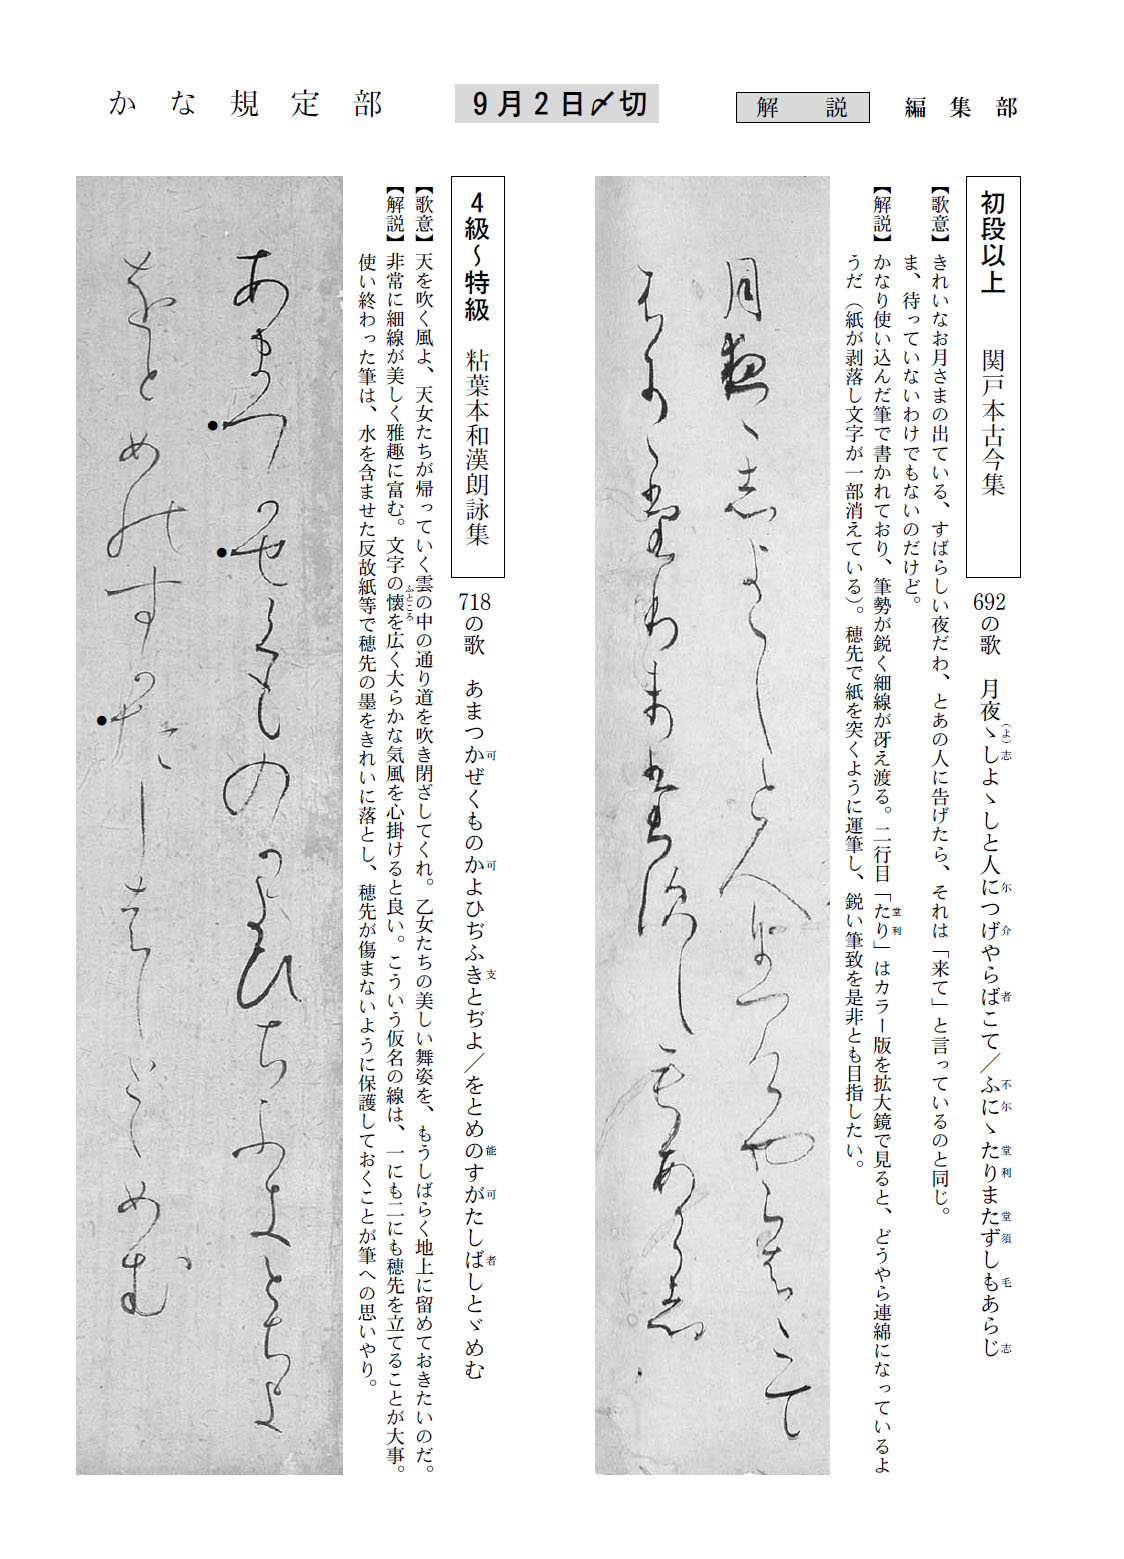 かな規定部
9月2日〆切
解説
編集部
初段以上 関戸本古今集
692の歌 月夜ゝしよゝしと人につげやらばこて／ふにゝたりまたずしもあらじ
（よ）志 尓 介 者 不 尓 堂 利 堂 須 毛 志
【歌意】きれいなお月さまの出ている、すばらしい夜だわ、とあの人に告げたら、それは「来て」と言っているのと同じ。
ま、待っていないわけでもないのだけど。
【解説】かなり使い込んだ筆で書かれており、筆勢が鋭く細線が冴え渡る。二行目「たり」はカラー版を拡大鏡で見ると、どうやら連綿になっているよ
堂 利
うだ（紙が剥落し文字が一部消えている）。穂先で紙を突くように運筆し、鋭い筆致を是非とも目指したい。
月夜ゝ志よゝしと人尓つ介やら者こて
不尓ゝ堂利ま堂須し毛あら志
4級〜特級 粘葉本和漢朗詠集
718の歌 あまつかぜくものかよひぢふきとぢよ／をとめのすがたしばしとゞめむ
可 可 支 能 可 者
【歌意】天を吹く風よ、天女たちが帰っていく雲の中の通り道を吹き閉ざしてくれ。乙女たちの美しい舞姿を、もうしばらく地上に留めておきたいのだ。
【解説】非常に細線が美しく雅趣に富む。文字の懐を広く大らかな気風を心掛けると良い。こういう仮名の線は、一にも二にも穂先を立てることが大事。
ふところ
使い終わった筆は、水を含ませた反故紙等で穂先の墨をきれいに落とし、穂先が傷まないように保護しておくことが筆への思いやり。
あまつ可せくもの可よひちふ支とちよ
をとめ能す可たし者しとゝめむ